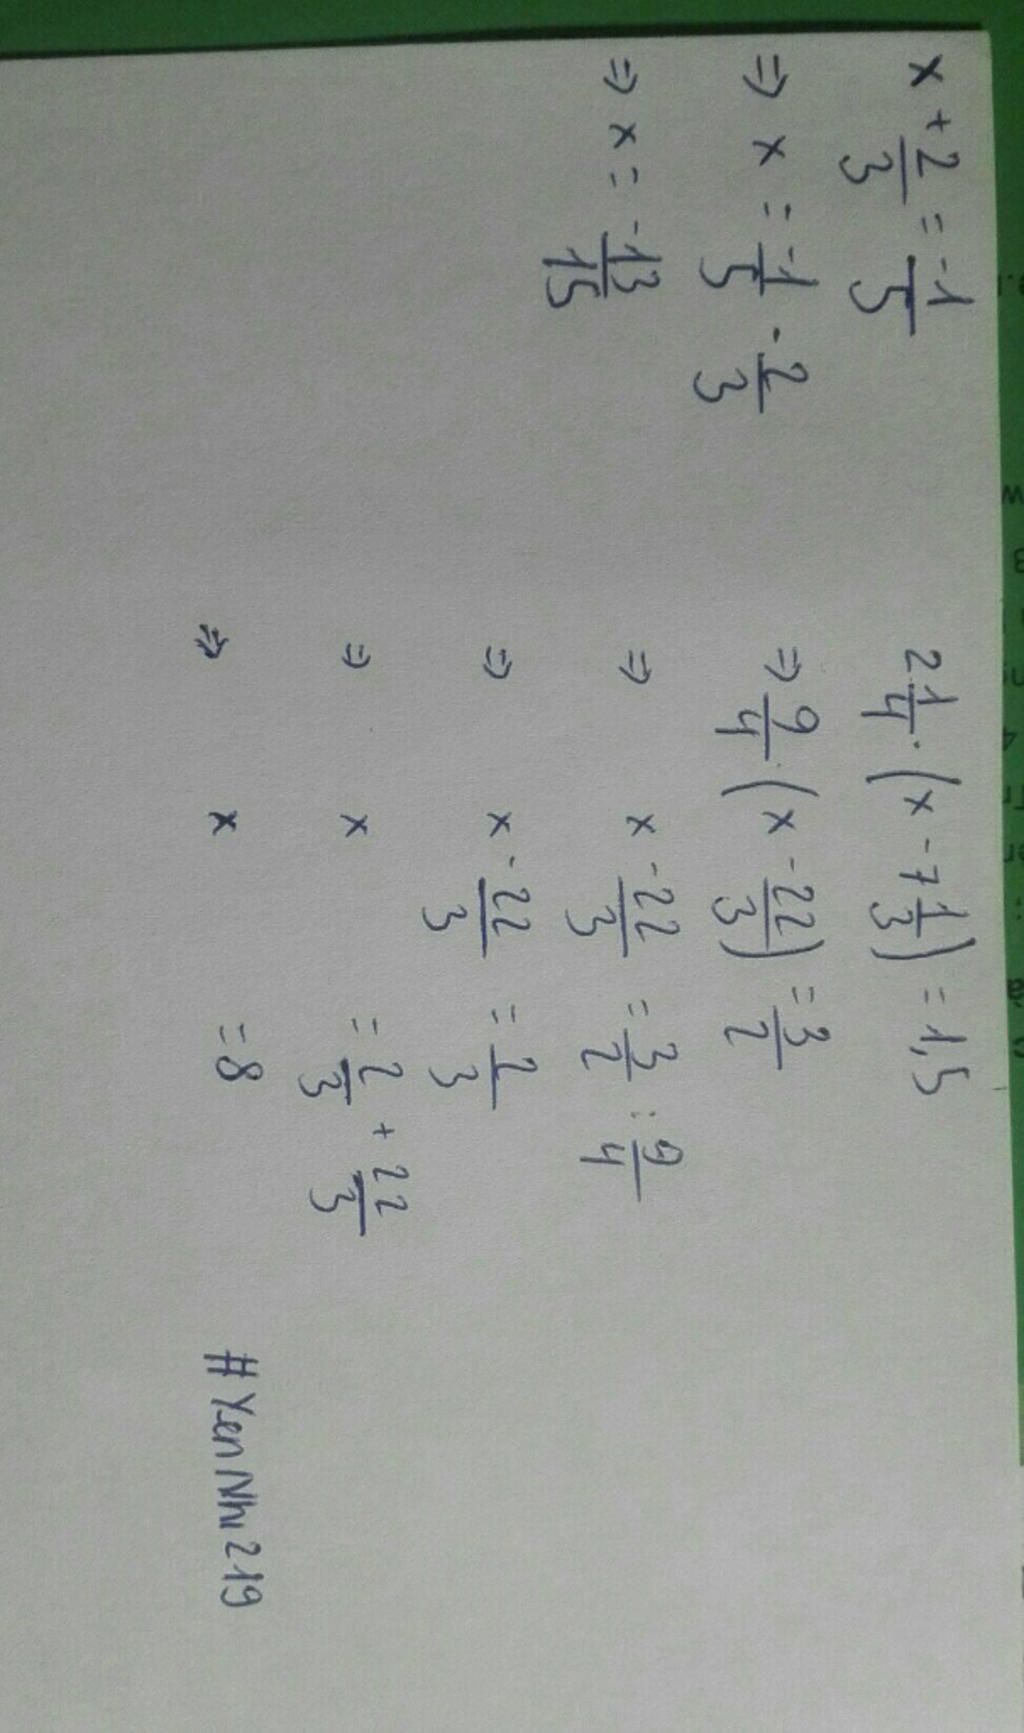 x + 2/3 = -1/5
⇒ x = -1/5 - 2/3
⇒ x = -13/15
2 1/4 . (x - 7 1/3) = 1,5
⇒ 9/4 . (x - 22/3) = 3/2
⇒ x - 22/3 = 3/2 : 9/4
⇒ x - 22/3 = 2/3
⇒ x = 2/3 + 22/3
⇒ x = 8
#YenNhi219